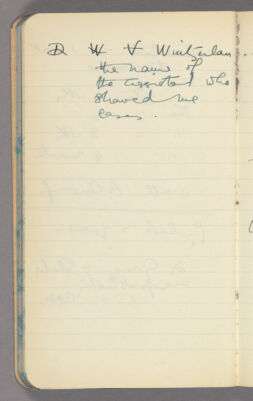 D W V Winterlan.
the name of
the who
showed me
cases.